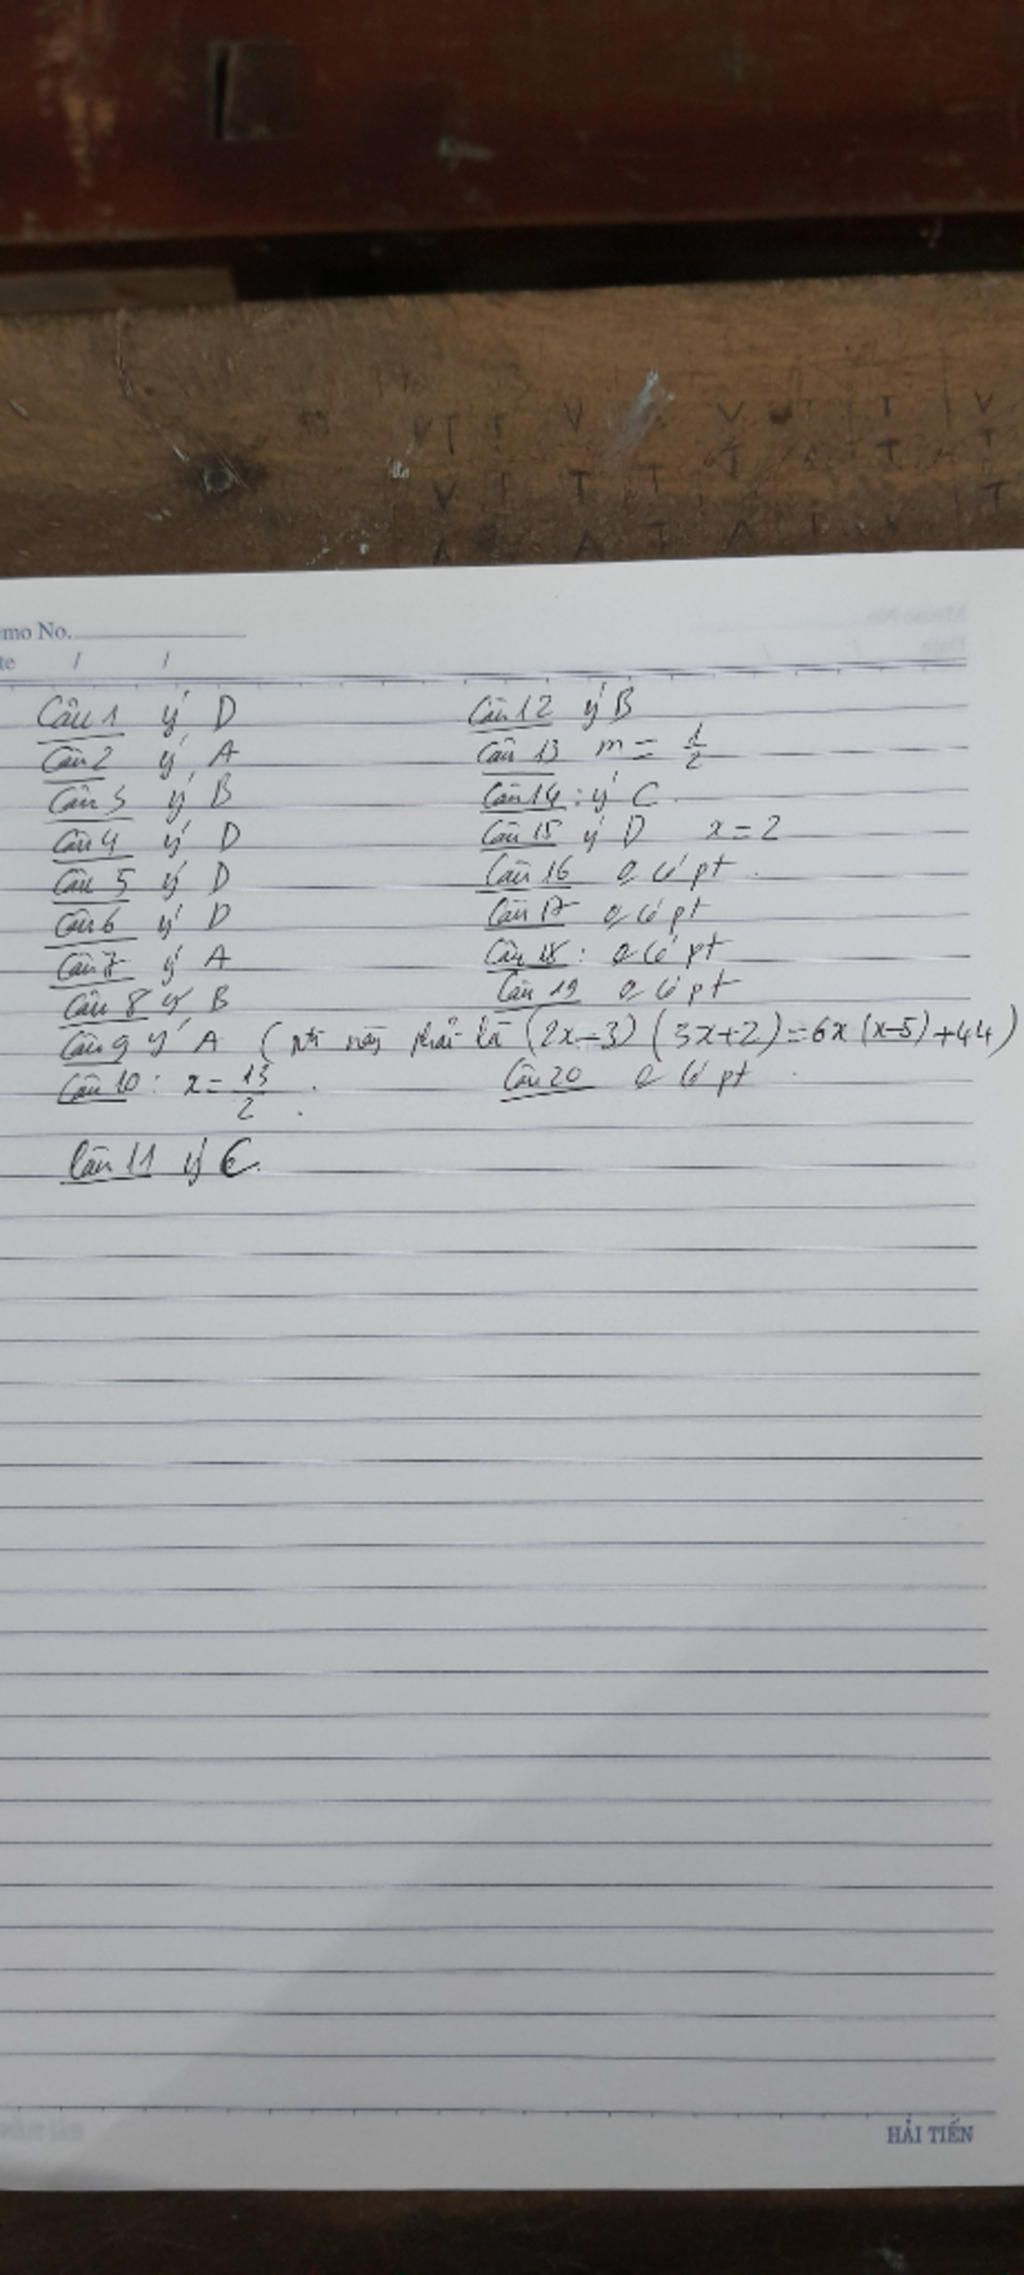 emo No.
te / /
Câu 1 ý D
Câu 2 ý A
Câu 3 ý B
Câu 4 ý D
Câu 5 ý D
Câu 6 ý D
Câu 7 ý A
Câu 8 ý B
Câu 9 ý A ( phải là (2x-3)(3x+2)=6x(x-5)+44)
Câu 10 : x = 13/2 .
Câu 11 ý C.
Câu 12 ý B
Câu 13 m = 1/2
Câu 14 : ý C.
Câu 15 ý D x = 2
Câu 16 có pt .
Câu 17 có pt
Câu 18 : có pt
Câu 19 có pt
Câu 20 có pt .
HẢI TIẾN